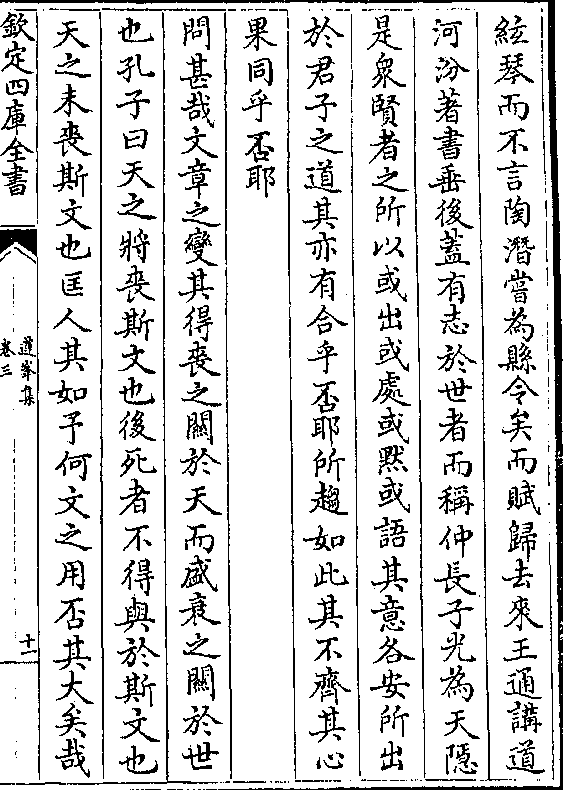 絃琴而不言陶潛嘗為縣令矣而賦歸去來王通講道
河汾著書垂後蓋有志於世者而稱仲長子光為天隱
是衆賢者之所以或出或處或黙或語其意各安所出
於君子之道其亦有合乎否耶所趨如此其不齊其心
果同乎否耶
問甚哉文章之變其得喪之闗於天而盛衰之闗於世
也孔子曰天之將喪斯文也後死者不得與於斯文也
天之未喪斯文也匡人其如予何文之用否其大矣哉
欽定四庫全書
卷三
十一